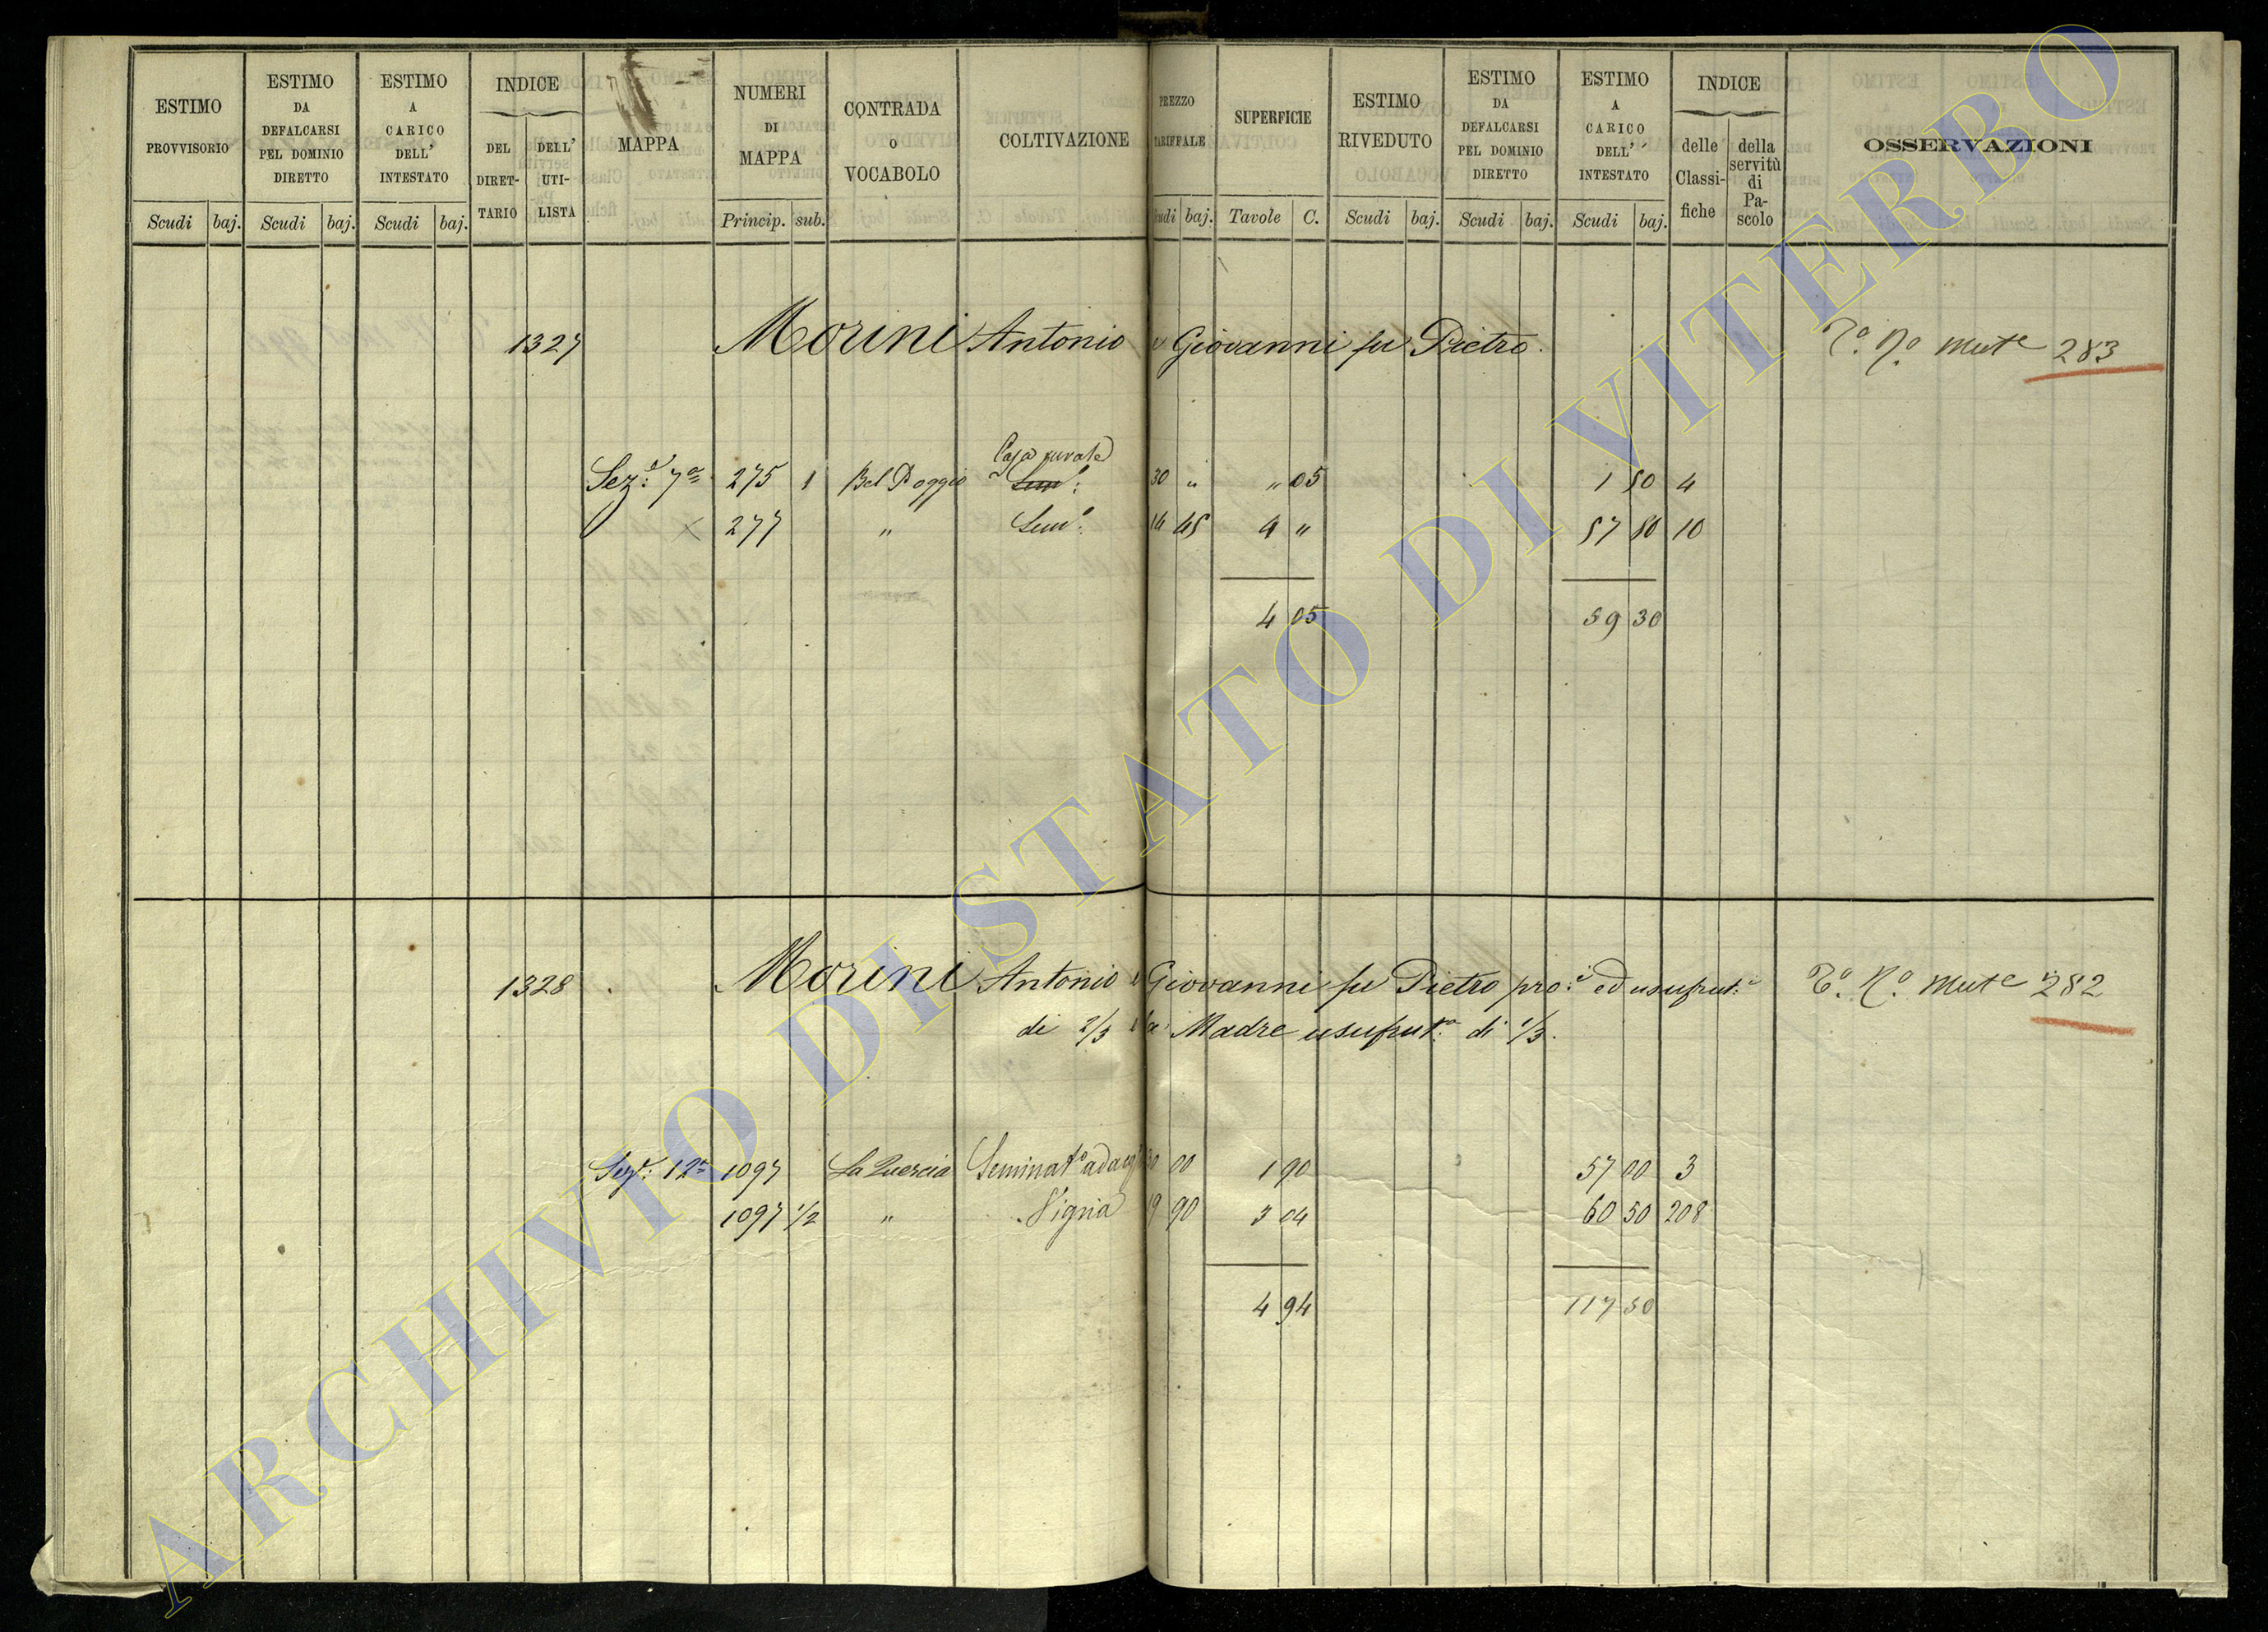 ESTIMO PROVVISORIO ESTIMO DA DEFALCARSI PEL DOMINIO DIRETTO ESTIMO A CARICO DELL' INTESTATO INDICE DEL DIRETTARIO DELL' UTILISTA MAPPA NUMERI DI MAPPA CONTRADA O VOCABOLO COLTIVAZIONE PREZZO TARIFFALE SUPERFICIE ESTIMO RIVEDUTO ESTIMO DA DEFALCARSI PEL DOMINIO DIRETTO ESTIMO A CARICO DELL' INTESTATO INDICE delle Classifiche della servitù di Pascolo OSSERVAZIONI
Scudi baj. Scudi baj. Scudi baj. Princip. sub. Scudi baj. Tavole C. Scudi baj. Scudi baj. Scudi baj.
1327 Morini Antonio e Giovanni fu Pietro. T.º N.º Mut.e 283
Casa rurale
Sez.e 7a 275 1 Bel Poggio Sem.º: 30 " " 05 1 50 4
x 277 " Sem.º: 14 45 4 " 57 80 10
4 05 59 30
1328 Morini Antonio e Giovanni fu Pietro pro.i ed usufrut.i T.º N.º Mut.e 282
di 2/3 e la Madre usufrut.a di 1/3.
Sez.e: 12a 1097 La Quercia Seminat.º adacq 30 00 1 90 57 00 3
1097 1/2 " Vigna 19 90 3 04 60 50 208
4 94 117 50
ARCHIVIO DI STATO DI VITERBO